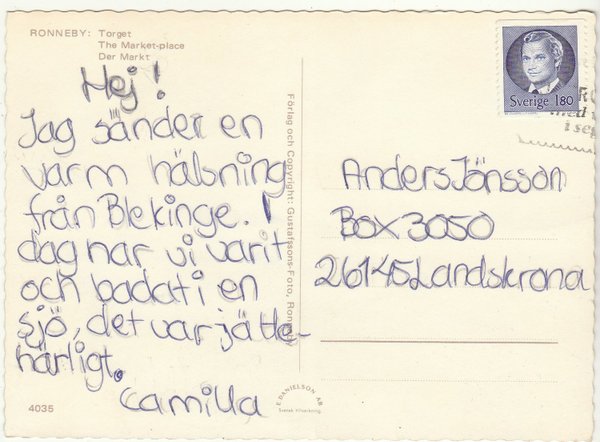 RONNEBY: Torget
The Market-place
Der Markt
Hej!
Jag sänder en
varm hälsning
från Blekinge. I
dag har vi varit
och badat i en
sjö, det var jätte-
härligt.
Camilla
4035
Förlag och Copyright: Gustafssons-Foto, Ronneby
E. DANIELSON AB
Svensk tillverkning
Sverige 180
med
i sep
Anders Jönsson
Box 3050
26145 Landskrona